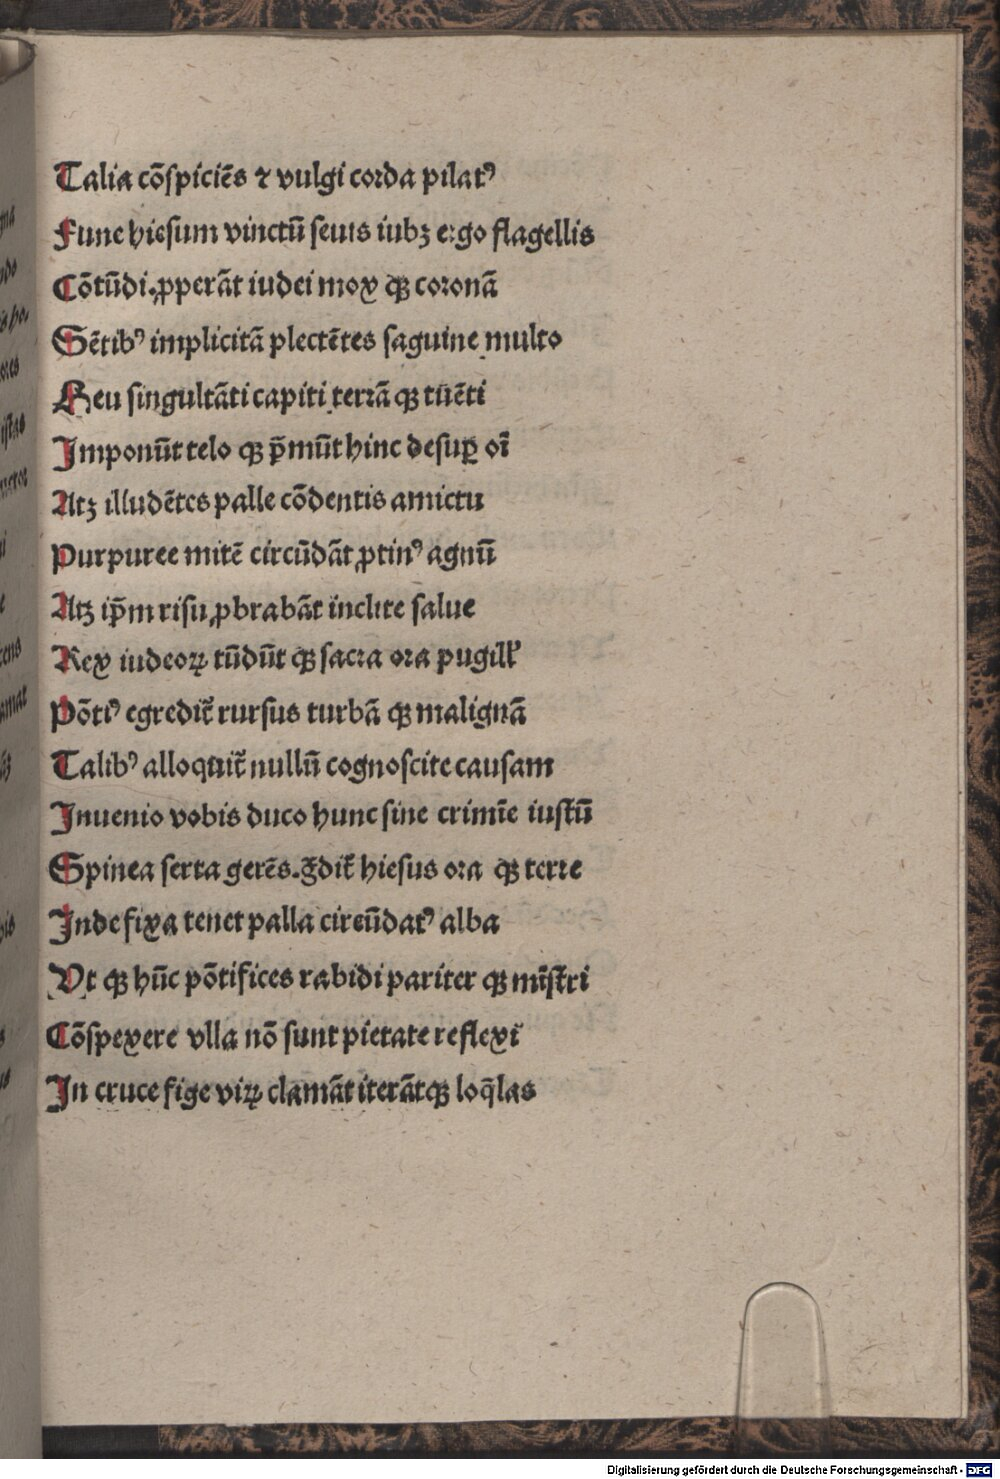 Talia cōſpiciēs ⁊ vulgi corda pilatꝰ
Fune hieſum vinctū ſeuis iubꝫ ergo flagellis
Cōtūdi ꝓperāt iudei mox qꝫ coronā
Sētibꝰ implicitā plectētes ſaguine multo
Heu ſingultāti capiti terrā qꝫ tuēti
Imponūt telo qꝫ p̄mūt hinc deſuꝑ oī
Atꝫ illudētes palle cōdentis amictu
Purpuree mitē circūdāt ꝓtinꝰ agnū
Atꝫ ip̄m riſu ꝓbrabāt inclite ſalue
Rex iudeoꝝ tūdūt qꝫ ſacra ora pugill'
Pōtiꝰ egredit᷑ rurſus turbā qꝫ malignā
Talibꝰ alloquit᷑ nullū cognoſcite cauſam
Inuenio vobis duco hunc ſine crimīe iuſtū
Spinea ſerta gerēs. g̊dit᷑ hieſus ora qꝫ terre
Inde fixa tenet palla circūdatꝰ alba
Vt qꝫ hūc pōtifices rabidi pariter qꝫ mīſtri
Cōſpexere vlla nō ſunt pietate reflexi
In cruce fige viꝝ clamāt iterātqꝫ loq̄las
Digitalisierung gefördert durch die Deutsche Forschungsgemeinschaft - DFG